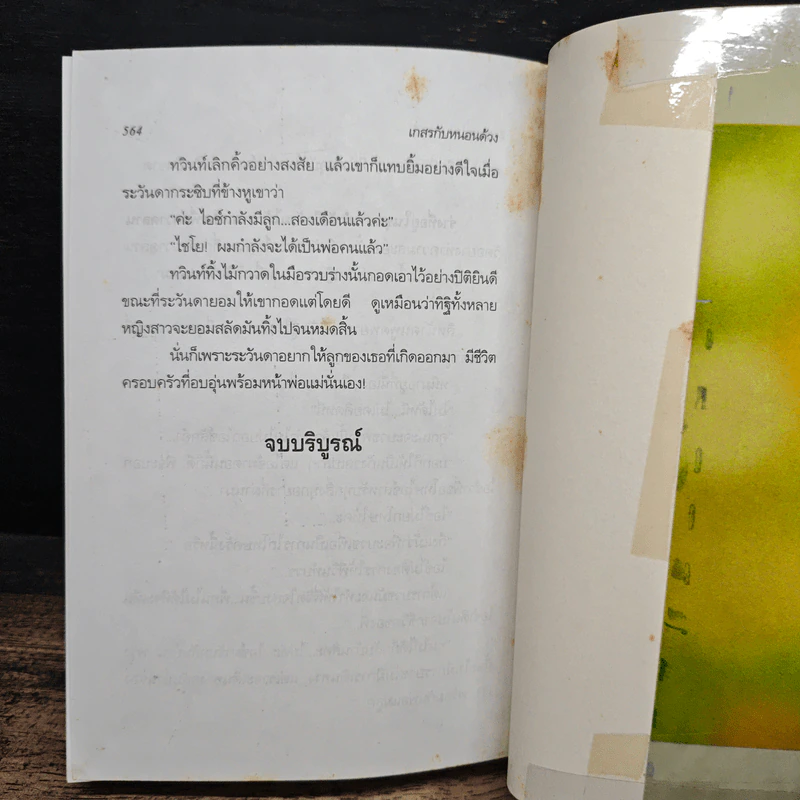 564 เกสรกับหนอนด้วง
ทวินท์เลิกคิ้วอย่างสงสัย แล้วเขาก็แทบยิ้มอย่างดีใจเมื่อ
ระวันดากระซิบที่ข้างหูเขาว่า
"ค่ะ ไอซ์กำลังมีลูก...สองเดือนแล้วค่ะ"
"ไชโย! ผมกำลังจะได้เป็นพ่อคนแล้ว"
ทวินท์ทิ้งไม้กวาดในมือรวบร่างนั้นกอดเอาไว้อย่างปิติยินดี
ขณะที่ระวันดายอมให้เขากอดแต่โดยดี ดูเหมือนว่าทิฐิทั้งหลาย
หญิงสาวจะยอมสลัดมันทิ้งไปจนหมดสิ้น
นั่นก็เพราะระวันดาอยากให้ลูกของเธอที่เกิดออกมา มีชีวิต
ครอบครัวที่อบอุ่นพร้อมหน้าพ่อแม่นั่นเอง!
จบบริบูรณ์